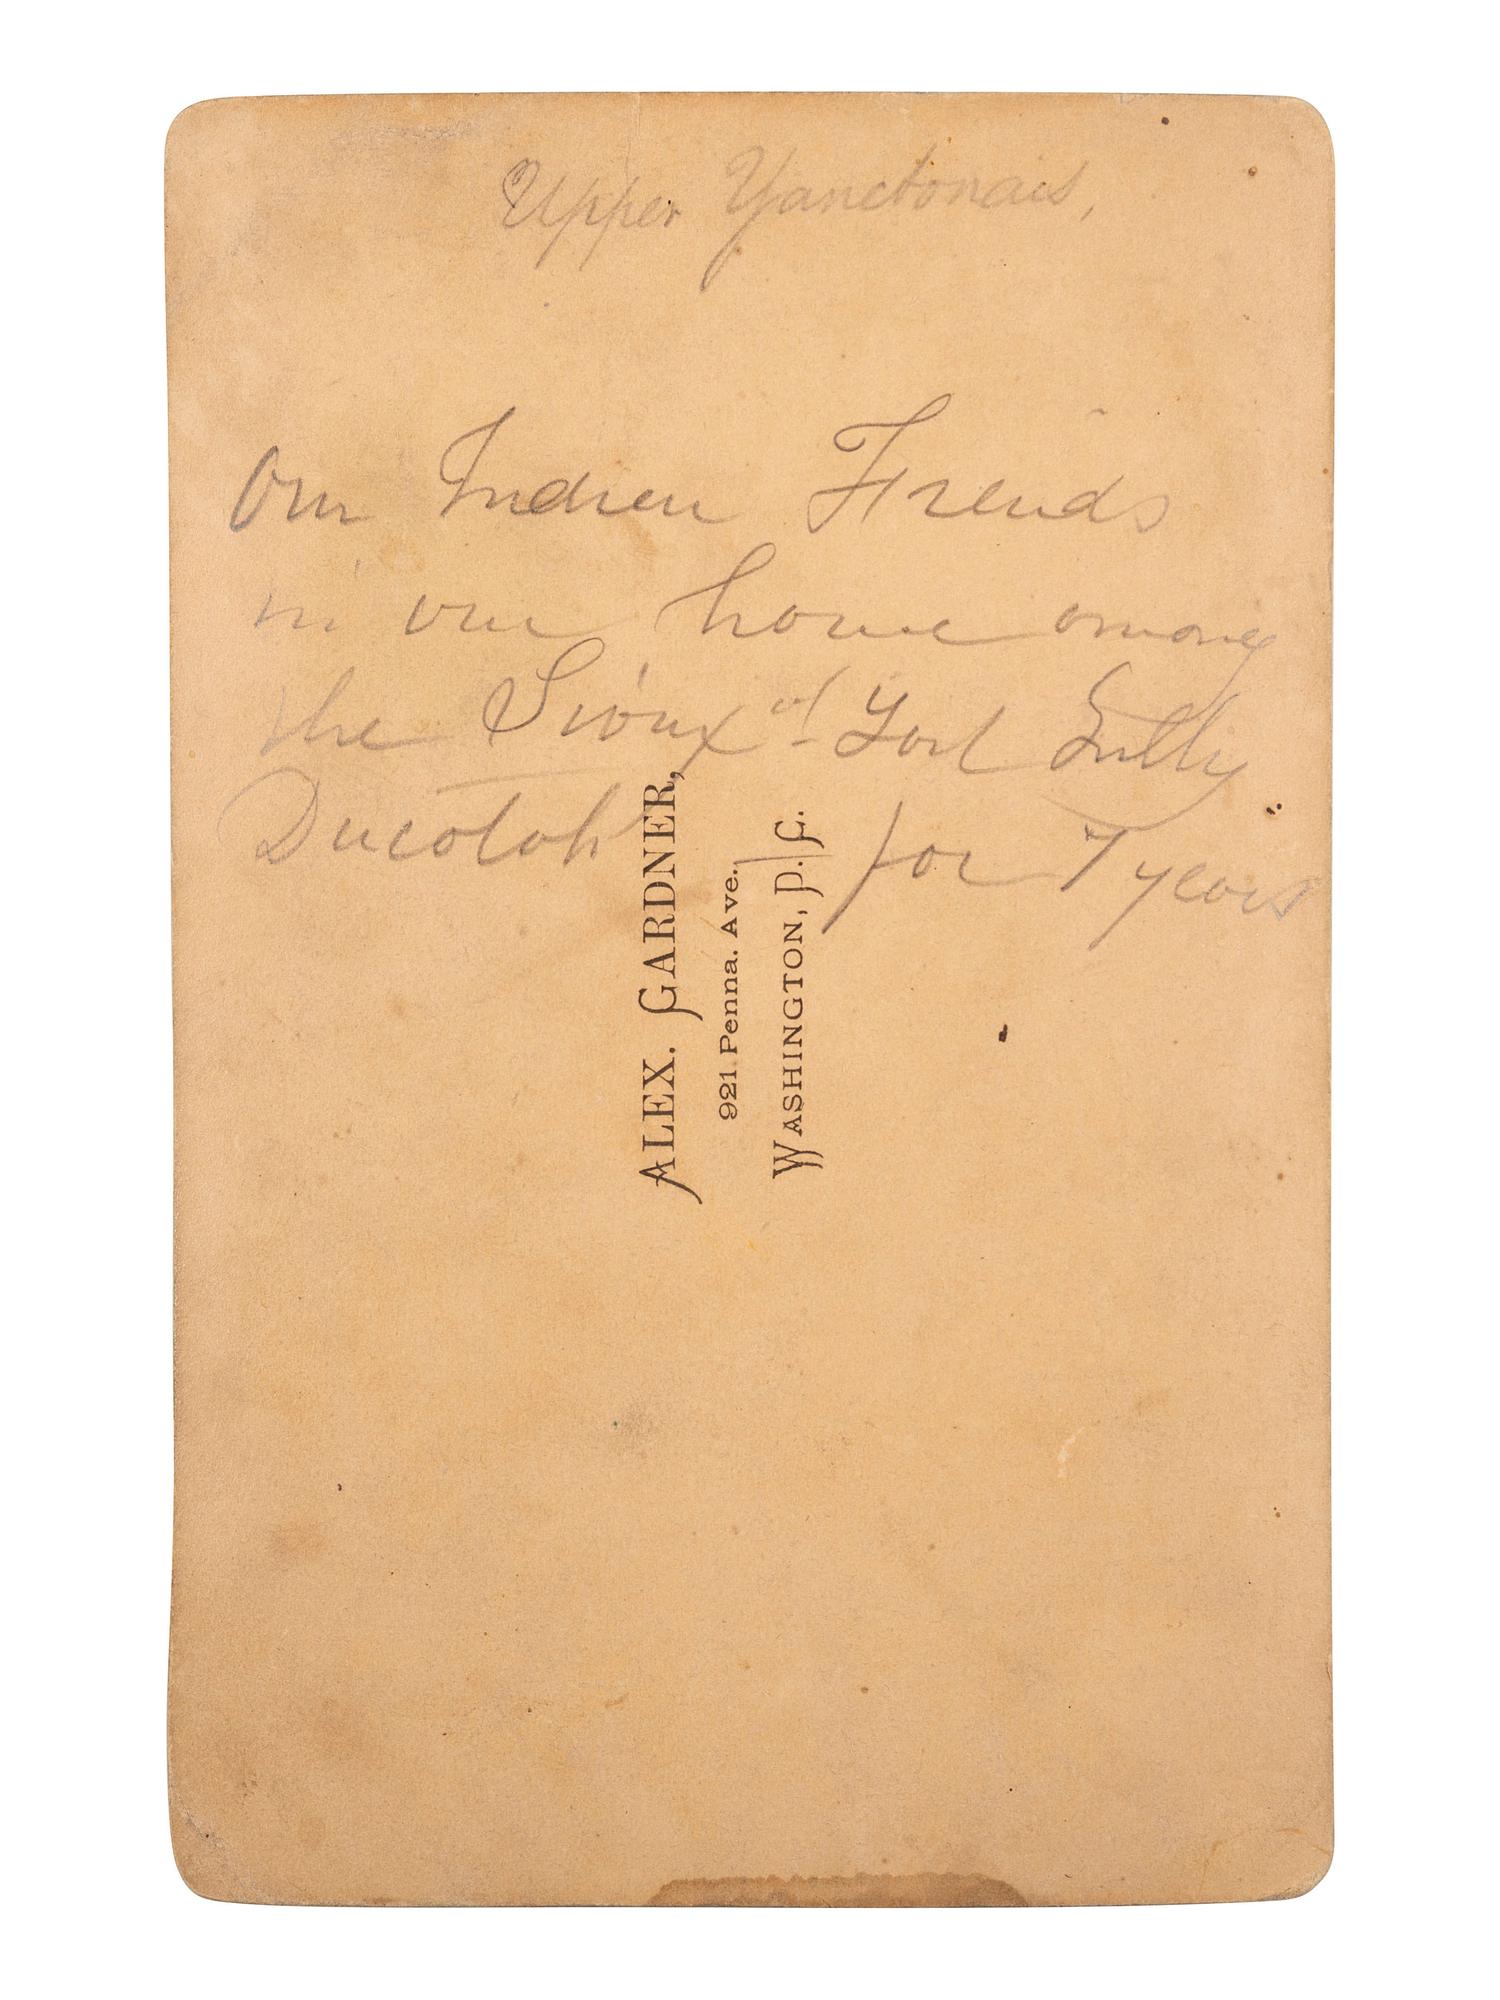 Upper Yanctonais,
Our Indien Freinds
in our home among
the Sioux at Fort Sully
Ducotah for 7 years
ALEX. GARDNER,
921 Penna. Ave.
WASHINGTON, D.C.